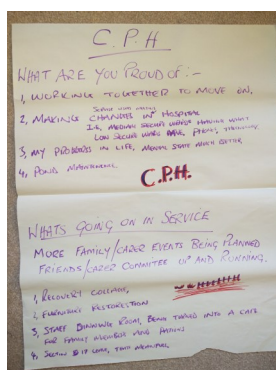 C.P.H
WHAT ARE YOU PROUD OF:-
1, WORKING TOGETHER TO MOVE ON.
2, MAKING CHANGES IN HOSPITAL
I.E, MEDIUM SECURE WARDS HAVING WHAT
LOW SECURE WARDS HAVE, PHONES,
3, MY PROGRESS IN LIFE, MENTAL STATE MUCH BETTER
4, POND MAINTENANCE.
C.P.H.
WHATS GOING ON IN SERVICE
MORE FAMILY/CARER EVENTS BEING PLANNED
FRIENDS/CARER COMMITEE UP AND RUNNING.
1, RECOVERY COLLEGE,
2, FURNITURE RESTORATION
3, STAFF DINNING ROOM, BEING TURNED INTO A CAFE
FOR FAMILY MEMBERS AND PATIENTS
4, SECTION 17 LEAVE,